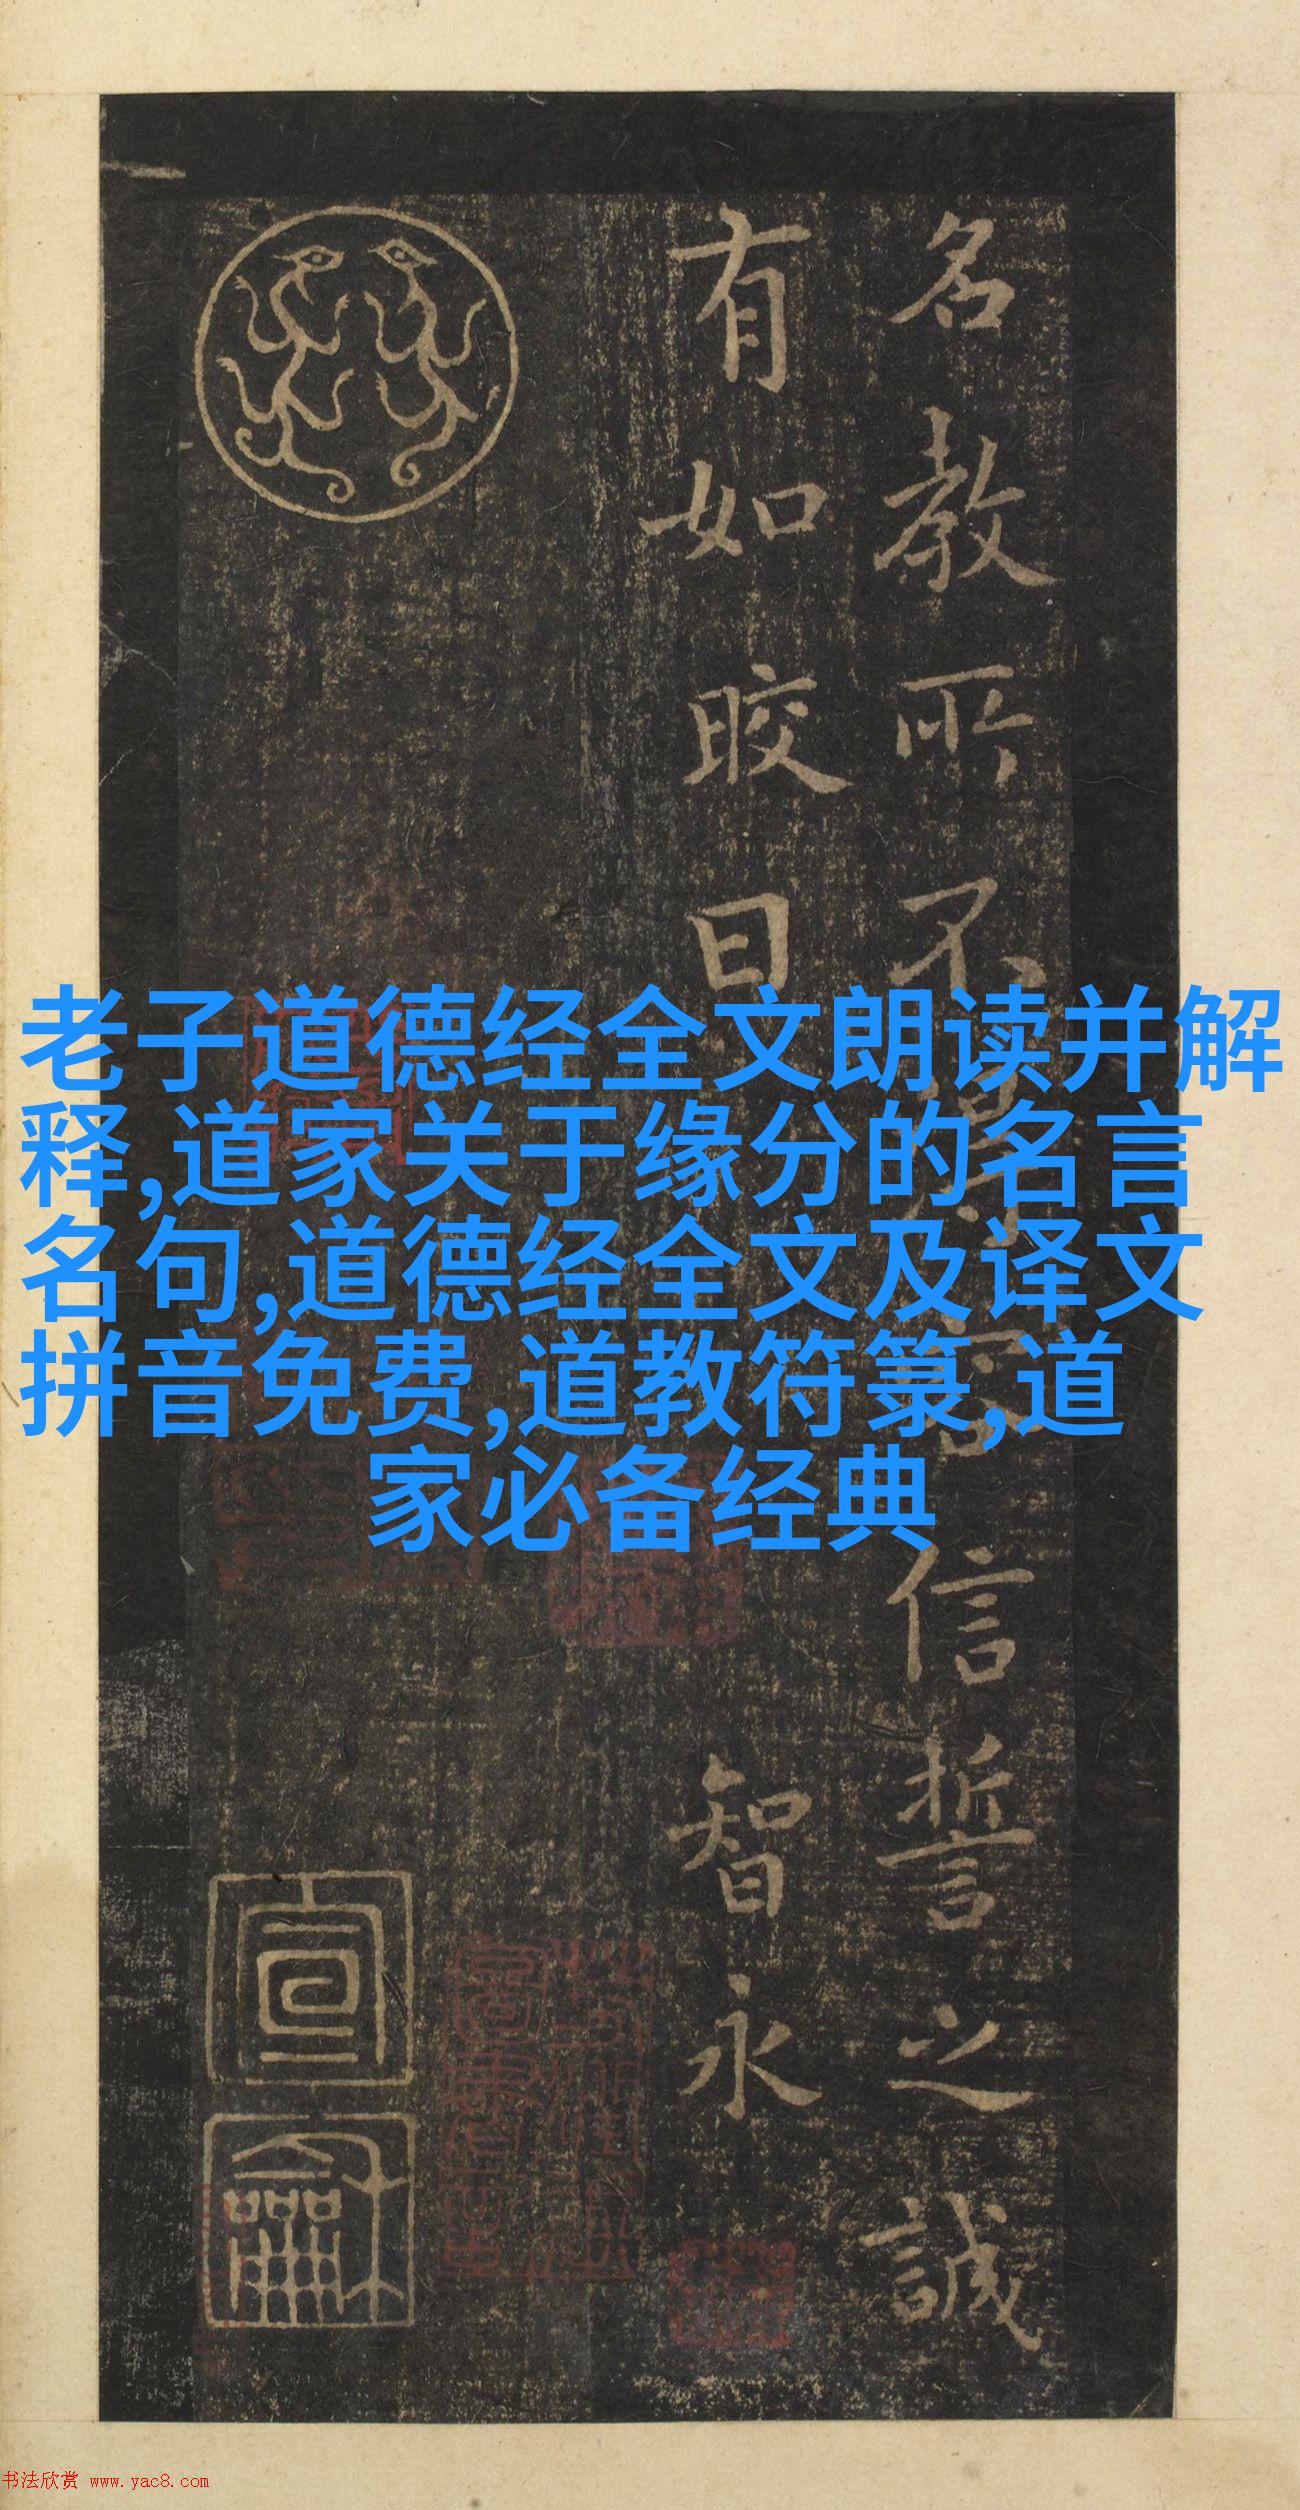 名教所不得容信誓之誠
有如晈日
智永
老子道德经全文朗读并解
释,道家关于缘分的名言
名句,道德经全文及译文
拼音免费,道教符箓,道
家必备经典
书法欣赏 www.yac8.com